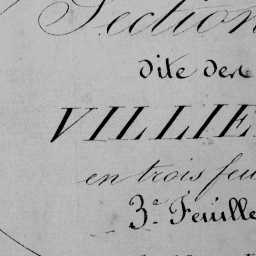 Section
dite des
VILLIE
en trois feu
3.e Feuille